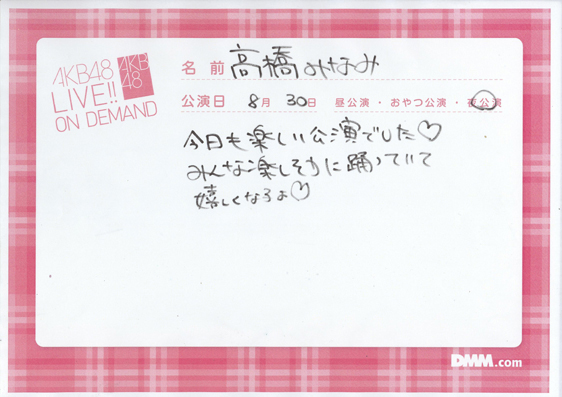 AKB48
LIVE!!
ON DEMAND
AKB
48
名前 高橋みなみ
公演日 8月 30日 昼公演・おやつ公演・夜公演
今日も楽しい公演でした♡
みんな楽しそうに踊っていて
嬉しくなるよ♡
DMM.com